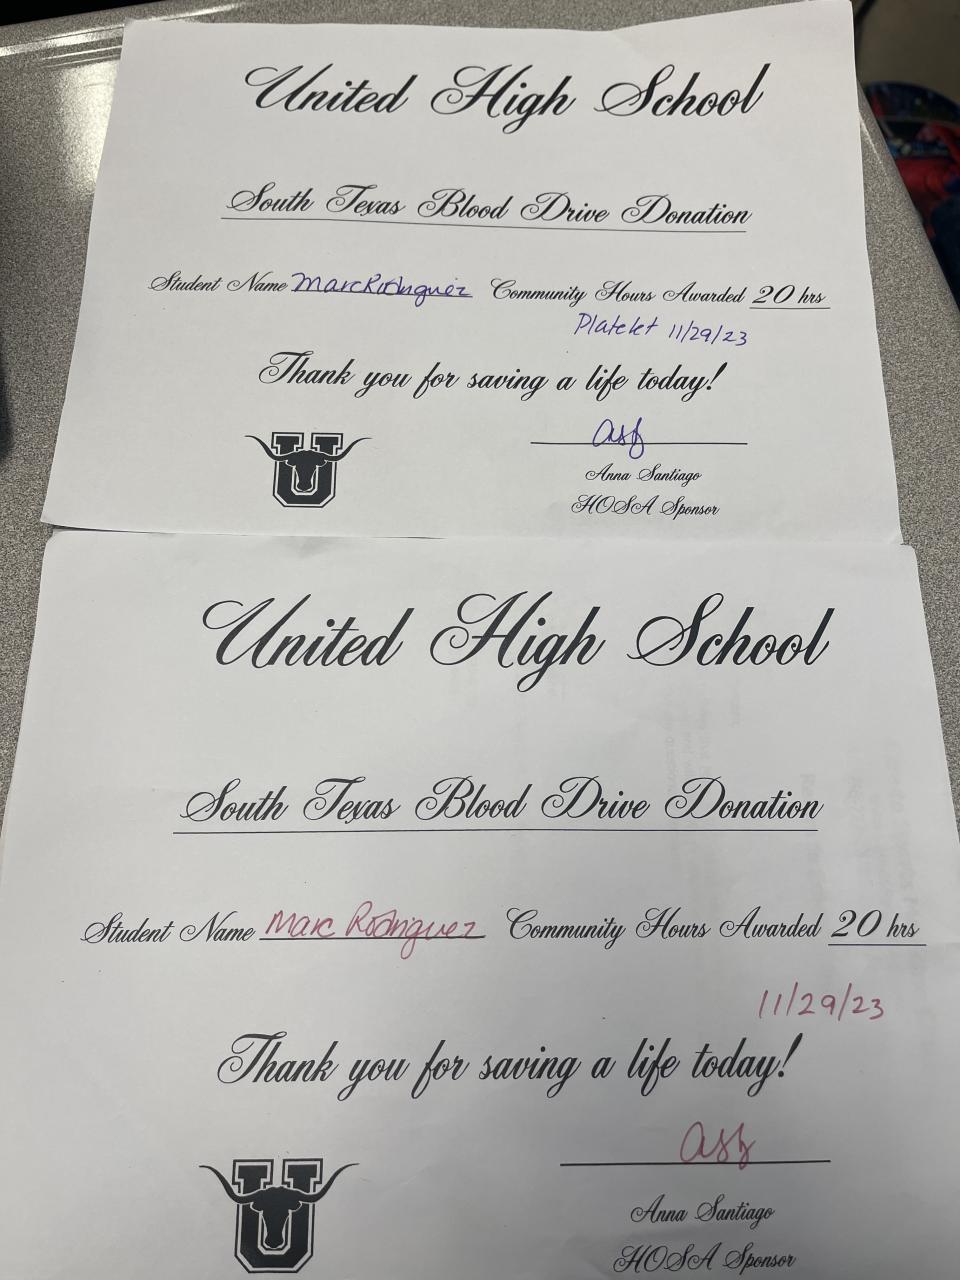 United High School
South Texas Blood Drive Donation
Student Name Marc Rodriguez Community Hours Awarded 20 hrs
Platelet 11/29/23
Thank you for saving a life today!
U
Anna Santiago
HOSA Sponsor
United High School
South Texas Blood Drive Donation
Student Name Marc Rodriguez Community Hours Awarded 20 hrs
11/29/23
Thank you for saving a life today!
U
Anna Santiago
HOSA Sponsor